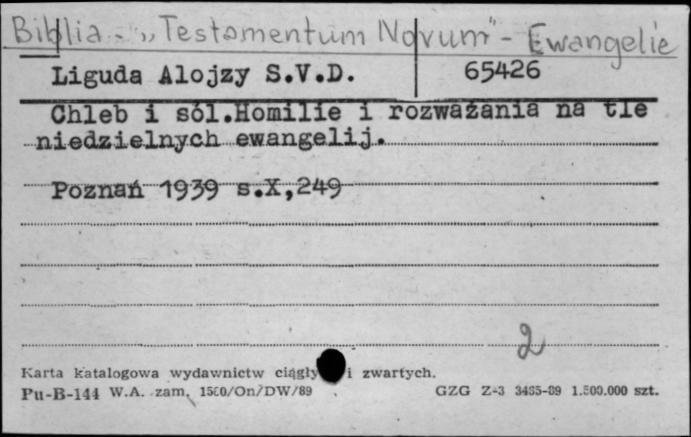 Biblia - „Testamentum Novum" - Ewangelie
Liguda Alojzy S.V.D. 65426
Chleb i sól.Homilie i rozważania na tle
niedzielnych ewangelij.
Poznań 1939 s.X,249
2
Karta katalogowa wydawnictw ciągły i zwartych.
Pu-B-144 W.A. zam. 1500/On/DW/89 GZG Z-3 3485-89 1.500.000 szt.